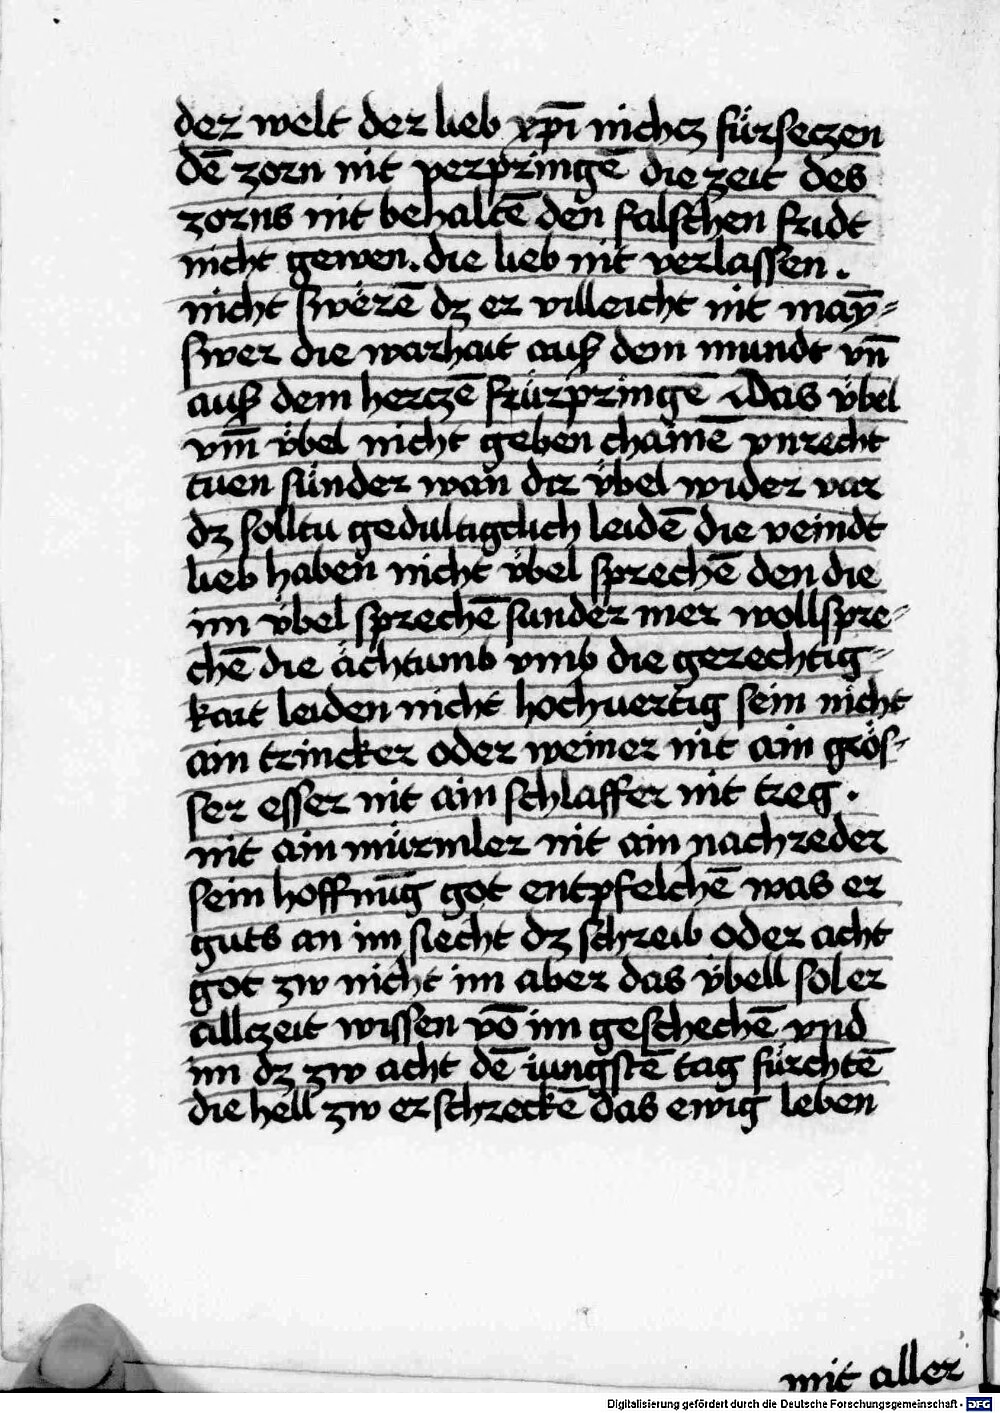 der welt der lieb xp̄i nichcz fürseczen
dē zorn nit verpringē die zeit des
zorns nit behaltē den falschen fridt
nicht gewen. die lieb nit verlassen.
nicht swёrē dz er villeicht nit maÿ⸗
swer die warhait auß dem mundt vn̄
auß dem herczē frürpringē Das v̈bel
vm̄ v̈bel nicht geben chainē vnrecht
tuen sünder wan dir v̈bel wider var
dz solltu gedultigclich leidē die veindt
lieb haben nicht v̈bel sprechē den die
im v̈bel sprechē sunder mer wollspre⸗
chē die ächtumb vmb die gerechtig⸗
kait leiden nicht hochuertig sein nicht
ain trincker oder weiner nit ain grös⸗
ser esser nit ain schlaffer nit treg.
nit ain mürmler nit ain nachreder
sein hoffnūg got entpfelchē was er
guts an im siecht dz schreib oder acht
got zw nicht im aber das v̈bell soler
allczeit wissen vō im geschechē vnd
im dz zw acht dē iungstē tag fürchtē
die hell zw erschreckē das ewig leben
mit aller
Digitalisierung gefördert durch die Deutsche Forschungsgemeinschaft - DFG